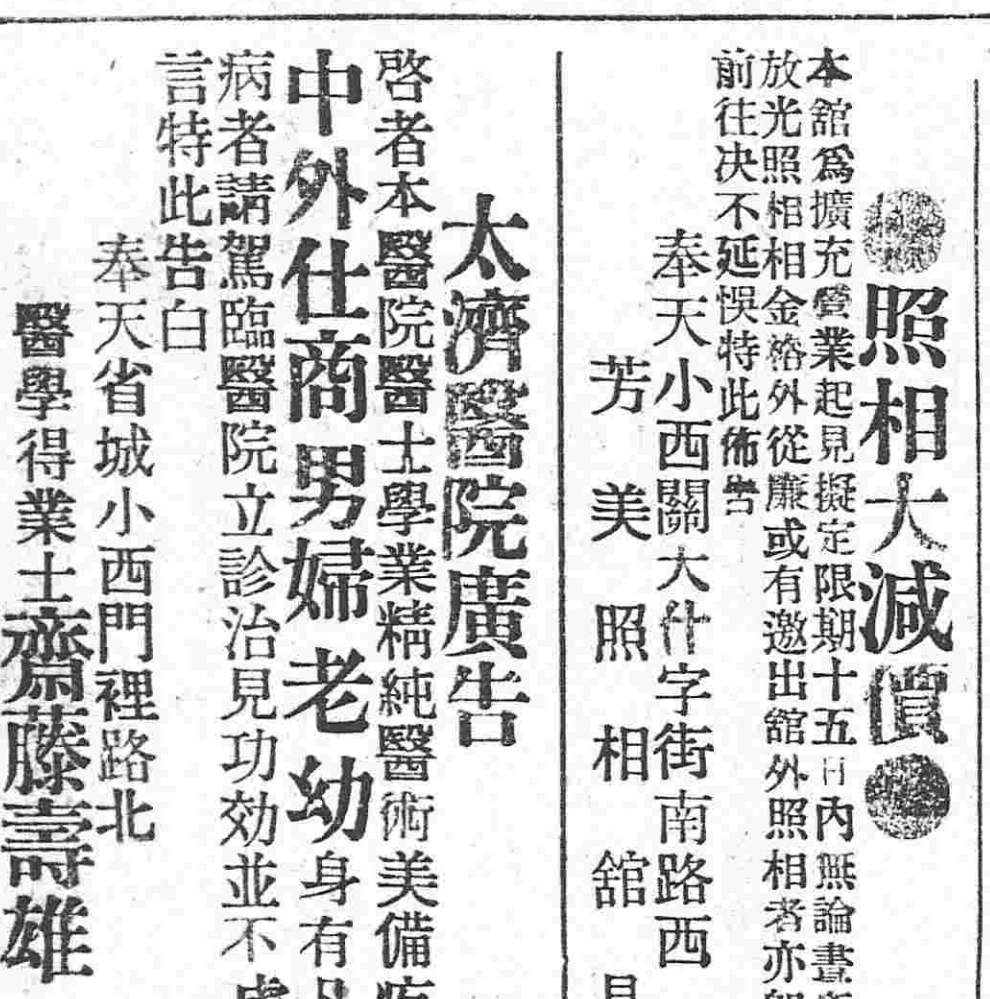 ●照相大減價●
本舘爲擴充營業起見擬定限期十五日內無論晝
放光照相相金格外從廉或有邀出舘外照相者亦
前往决不延悞特此佈告
奉天小西關大什字街南路西
芳美照相舘
太濟醫院廣告
啓者本醫院醫士學業精純醫術美備
中外仕商男婦老幼身有
病者請駕臨醫院立診治見功効並不
言特此告白
奉天省城小西門裡路北
醫學得業士齋藤壽雄